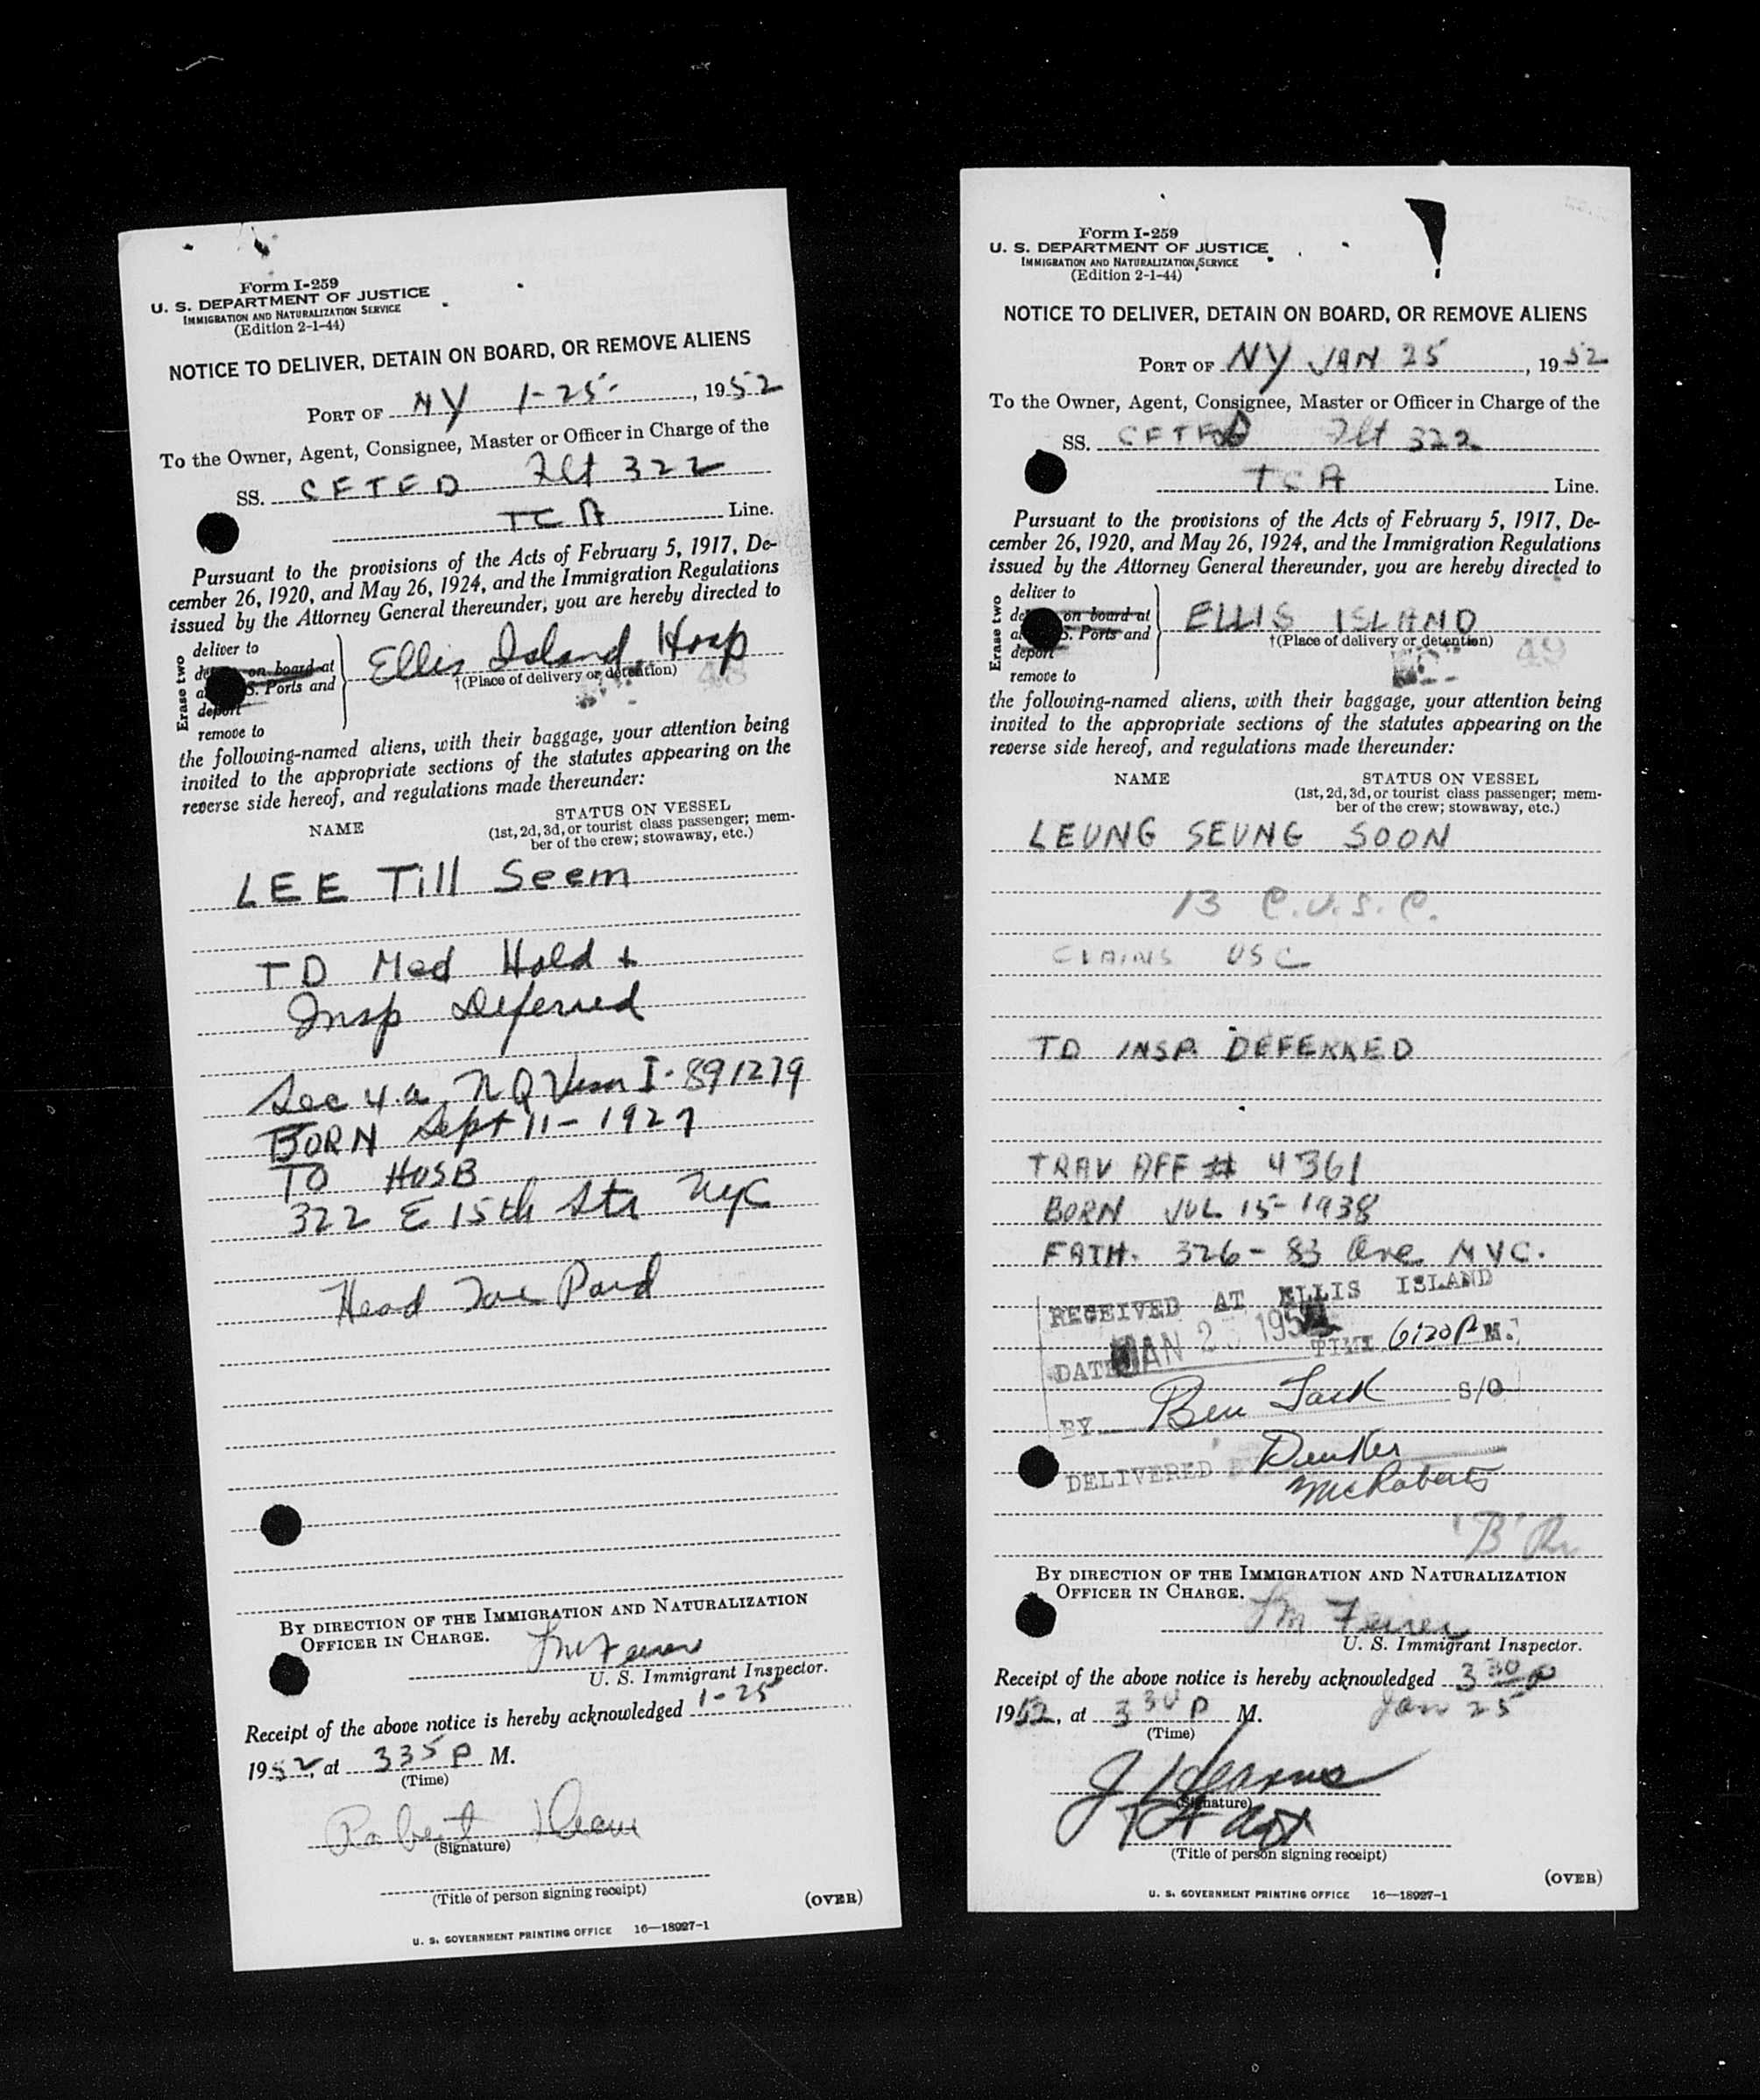 Form I-259
U. S. DEPARTMENT OF JUSTICE
IMMIGRATION AND NATURALIZATION SERVICE
(Edition 2-1-44)
NOTICE TO DELIVER, DETAIN ON BOARD, OR REMOVE ALIENS
PORT OF NY 1-25-, 1952
To the Owner, Agent, Consignee, Master or Officer in Charge of the
SS. CFTED Flt 322
TCA Line.
Pursuant to the provisions of the Acts of February 5, 1917, De-
cember 26, 1920, and May 26, 1924, and the Immigration Regulations
issued by the Attorney General thereunder, you are hereby directed to
Erase two
deliver to
on board at
S. Ports and
deport
remove to
Ellis Island Hosp
†(Place of delivery or detention)
the following-named aliens, with their baggage, your attention being
invited to the appropriate sections of the statutes appearing on the
reverse side hereof, and regulations made thereunder:
NAME
STATUS ON VESSEL
(1st, 2d, 3d, or tourist class passenger; mem-
ber of the crew; stowaway, etc.)
LEE Till Seem
TD Med Hold +
Insp Deferred
Sec 4-a NQ I-891279
BORN Sept 11-1927
TO HUSB
322 E 15th Str NYC
Head Tax Paid
BY DIRECTION OF THE IMMIGRATION AND NATURALIZATION
OFFICER IN CHARGE.
U. S. Immigrant Inspector.
Receipt of the above notice is hereby acknowledged 1-25
1952, at 335 P M.
(Time)
Robert
(Signature)
(Title of person signing receipt)
(OVER)
U. S. GOVERNMENT PRINTING OFFICE 16—18927-1
Form I-259
U. S. DEPARTMENT OF JUSTICE
IMMIGRATION AND NATURALIZATION SERVICE
(Edition 2-1-44)
NOTICE TO DELIVER, DETAIN ON BOARD, OR REMOVE ALIENS
PORT OF NY JAN 25, 1952
To the Owner, Agent, Consignee, Master or Officer in Charge of the
SS. CFTED Flt 322
TCA Line.
Pursuant to the provisions of the Acts of February 5, 1917, De-
cember 26, 1920, and May 26, 1924, and the Immigration Regulations
issued by the Attorney General thereunder, you are hereby directed to
Erase two
deliver to
on board at
S. Ports and
deport
remove to
ELLIS ISLAND
†(Place of delivery or detention)
49
the following-named aliens, with their baggage, your attention being
invited to the appropriate sections of the statutes appearing on the
reverse side hereof, and regulations made thereunder:
NAME
STATUS ON VESSEL
(1st, 2d, 3d, or tourist class passenger; mem-
ber of the crew; stowaway, etc.)
LEUNG SEUNG SOON
13 C.U.S.C.
CLAIMS USC
TD INSP. DEFERRED
TRAV AFF # 4361
BORN JUL 15-1938
FATH. 326-83 Ave NYC.
RECEIVED AT ELLIS ISLAND
DATE JAN 25 195 TIME 6:20 P M.
BY Ben S/O
DELIVERED
McRoberts
'B'
BY DIRECTION OF THE IMMIGRATION AND NATURALIZATION
OFFICER IN CHARGE.
U. S. Immigrant Inspector.
Receipt of the above notice is hereby acknowledged 3 30 P
1952, at 3 30 P M. Jan 25
(Time)
(Signature)
TCA Agt
(Title of person signing receipt)
(OVER)
U. S. GOVERNMENT PRINTING OFFICE 16—18927-1